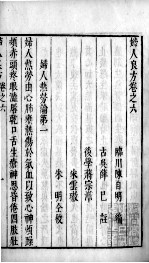 婦人良方卷之六
臨川陳自明 編
古吳薛己 註
後學蔣宗澹
朱雲徵
朱明 全校
婦人熱勞論第一
婦人熱勞由心肺壅熱傷於氣血以致心神煩躁
頰赤頭疼眼澁唇乾口舌生瘡神思昏倦四肢壯